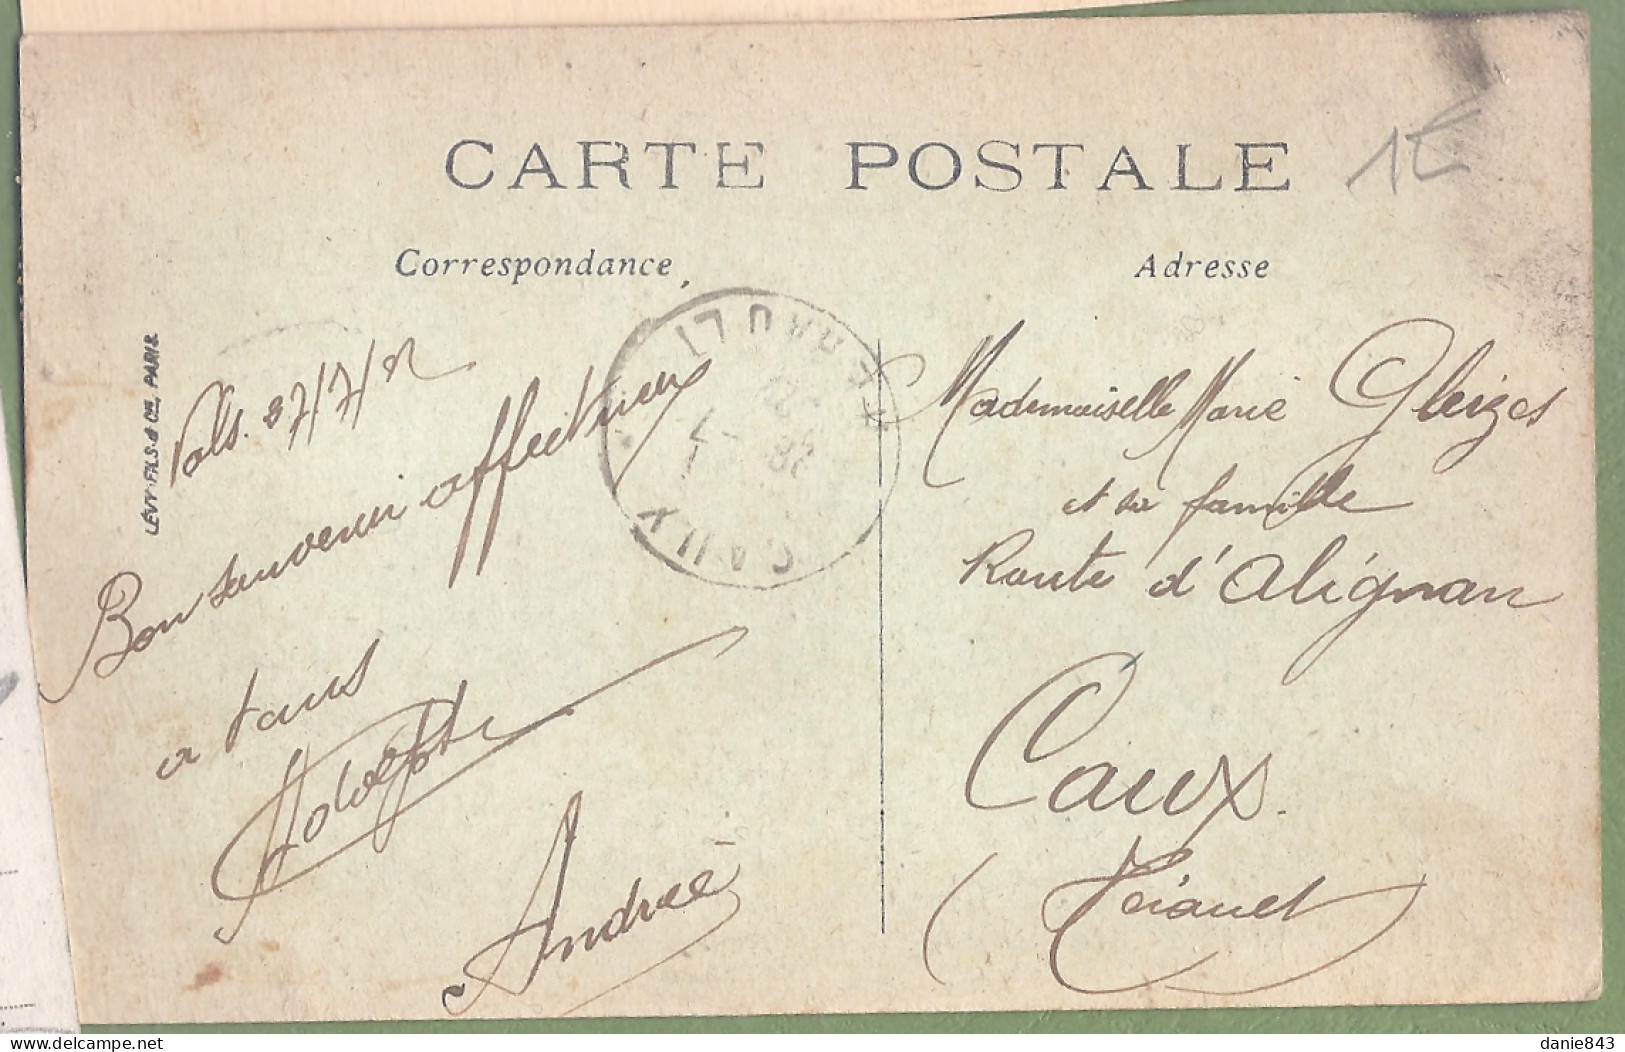 CARTE POSTALE
1€
Correspondance
Adresse
LÉVY FILS & Cie, PARIS
Vals. 27/7/21
Bon souvenir affectueux
a tous
Adolphe
Andrée
HÉRAULT
28 -7
21
CAUX
Mademoiselle Marie Gleizes
et sa famille
Route d'Alignan
Caux.
Hérault
danie843